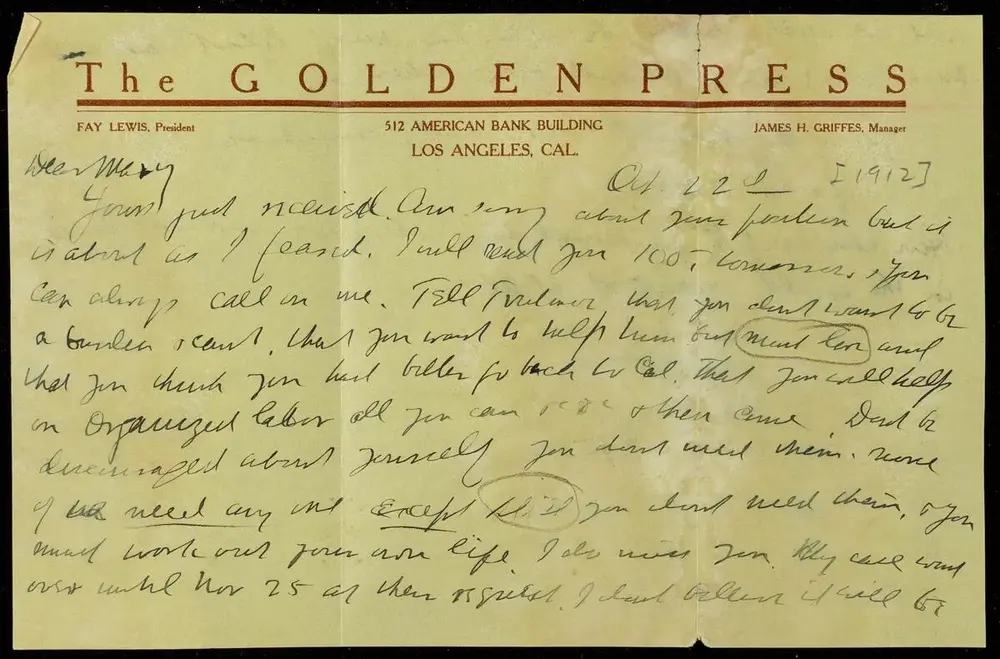 The GOLDEN PRESS
FAY LEWIS, President
512 AMERICAN BANK BUILDING
LOS ANGELES, CAL.
JAMES H. GRIFFES, Manager
Dear Mary
Oct 22d [1912]
Yours just received. Am sorry about your position but it
is about as I feared. I will send you 100. tomorrow & you
can always call on me. Tell that you dont want to be
a burden & cant, that you want to help him but must live and
that you think you had better go back to Cal. That you will help
on Organized labor all you can & then come Dont be
discouraged about yourself you dont need them. none
of us need any one except you dont need them, & you
must work out your own life. I do miss you. My case went
over until Nov 25 at their request. I dont believe it will be